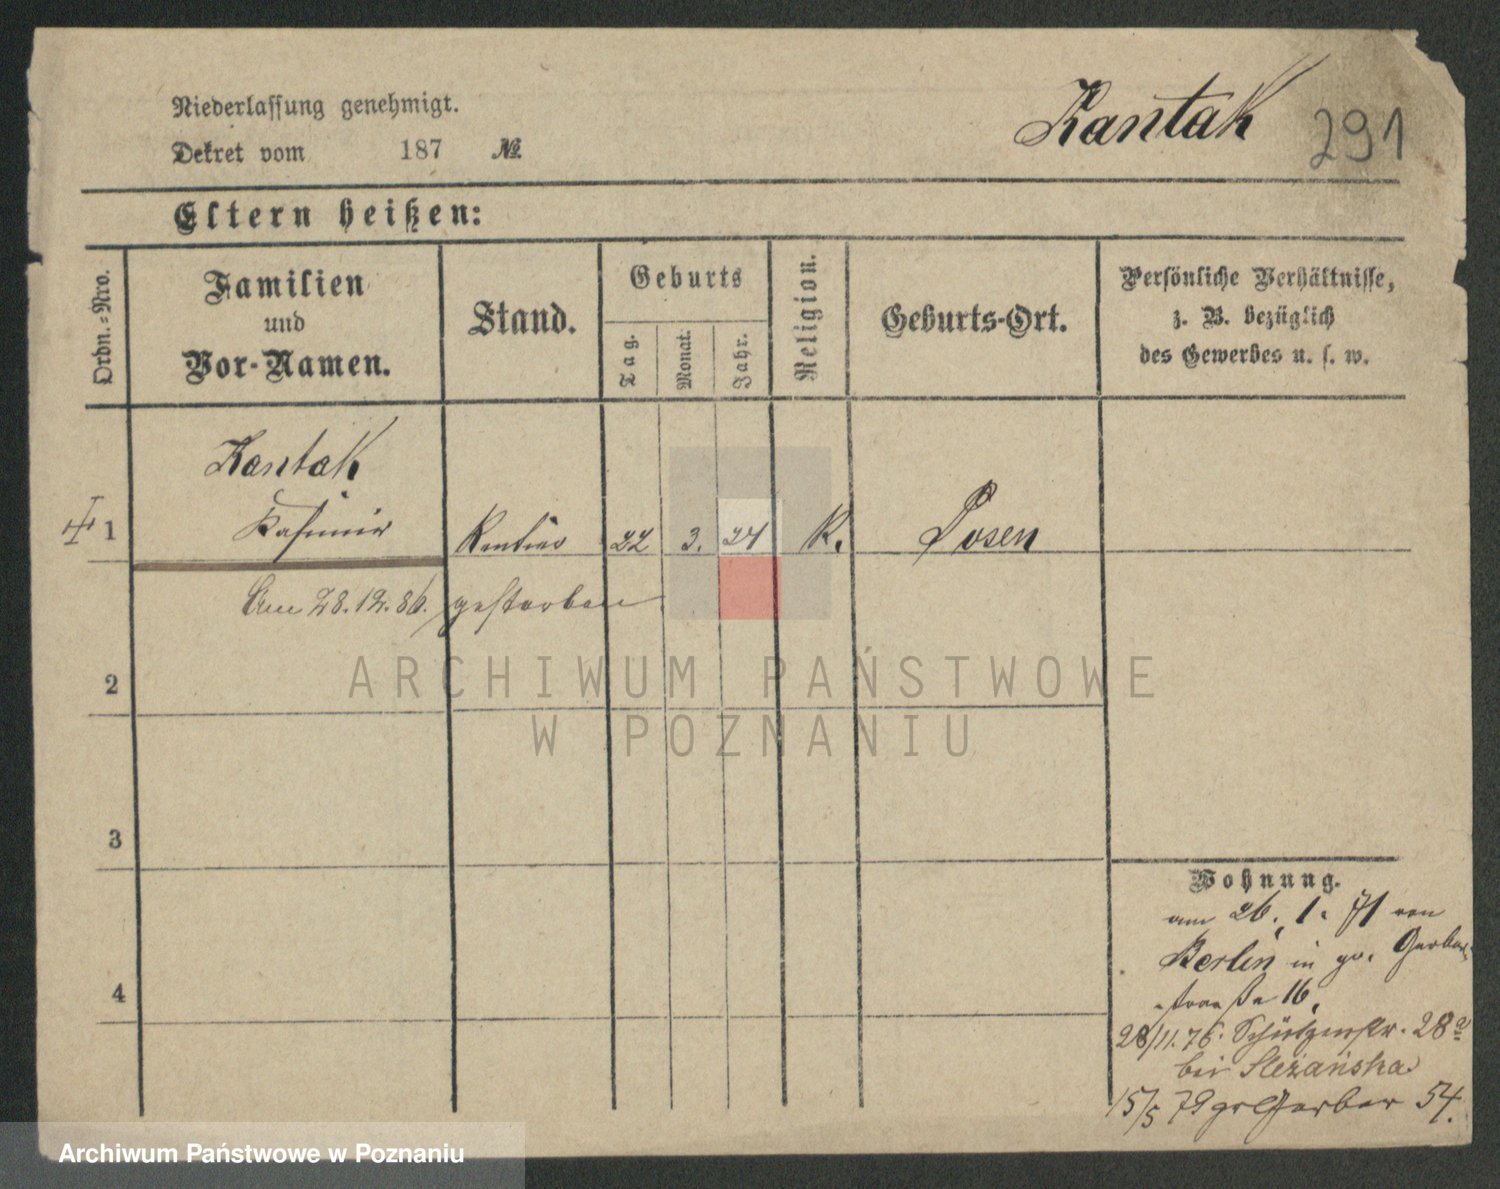 Niederlassung genehmigt.
Dekret vom 187 №
Kantak 291
Eltern heißen:
Ordn.-Nro.
Familien
und
Vor-Namen.
Stand.
Geburts
Tag.
Monat.
Jahr.
Religion.
Geburts-Ort.
Persönliche Verhältnisse,
z. B. bezüglich
des Gewerbes u. s. w.
Kantak
1 Kasimir Rentier 22 3. 24 K. Posen
Am 28.12.86. gestorben
2
3
4
Wohnung.
am 26. 1. 71 von
Berlin in gr. Gerber
straße 16.
28/11. 76. Schützenstr. 28a
bei Sleżańska
15/5 79 gr Gerber 54.
ARCHIWUM PAŃSTWOWE
W POZNANIU
Archiwum Państwowe w Poznaniu